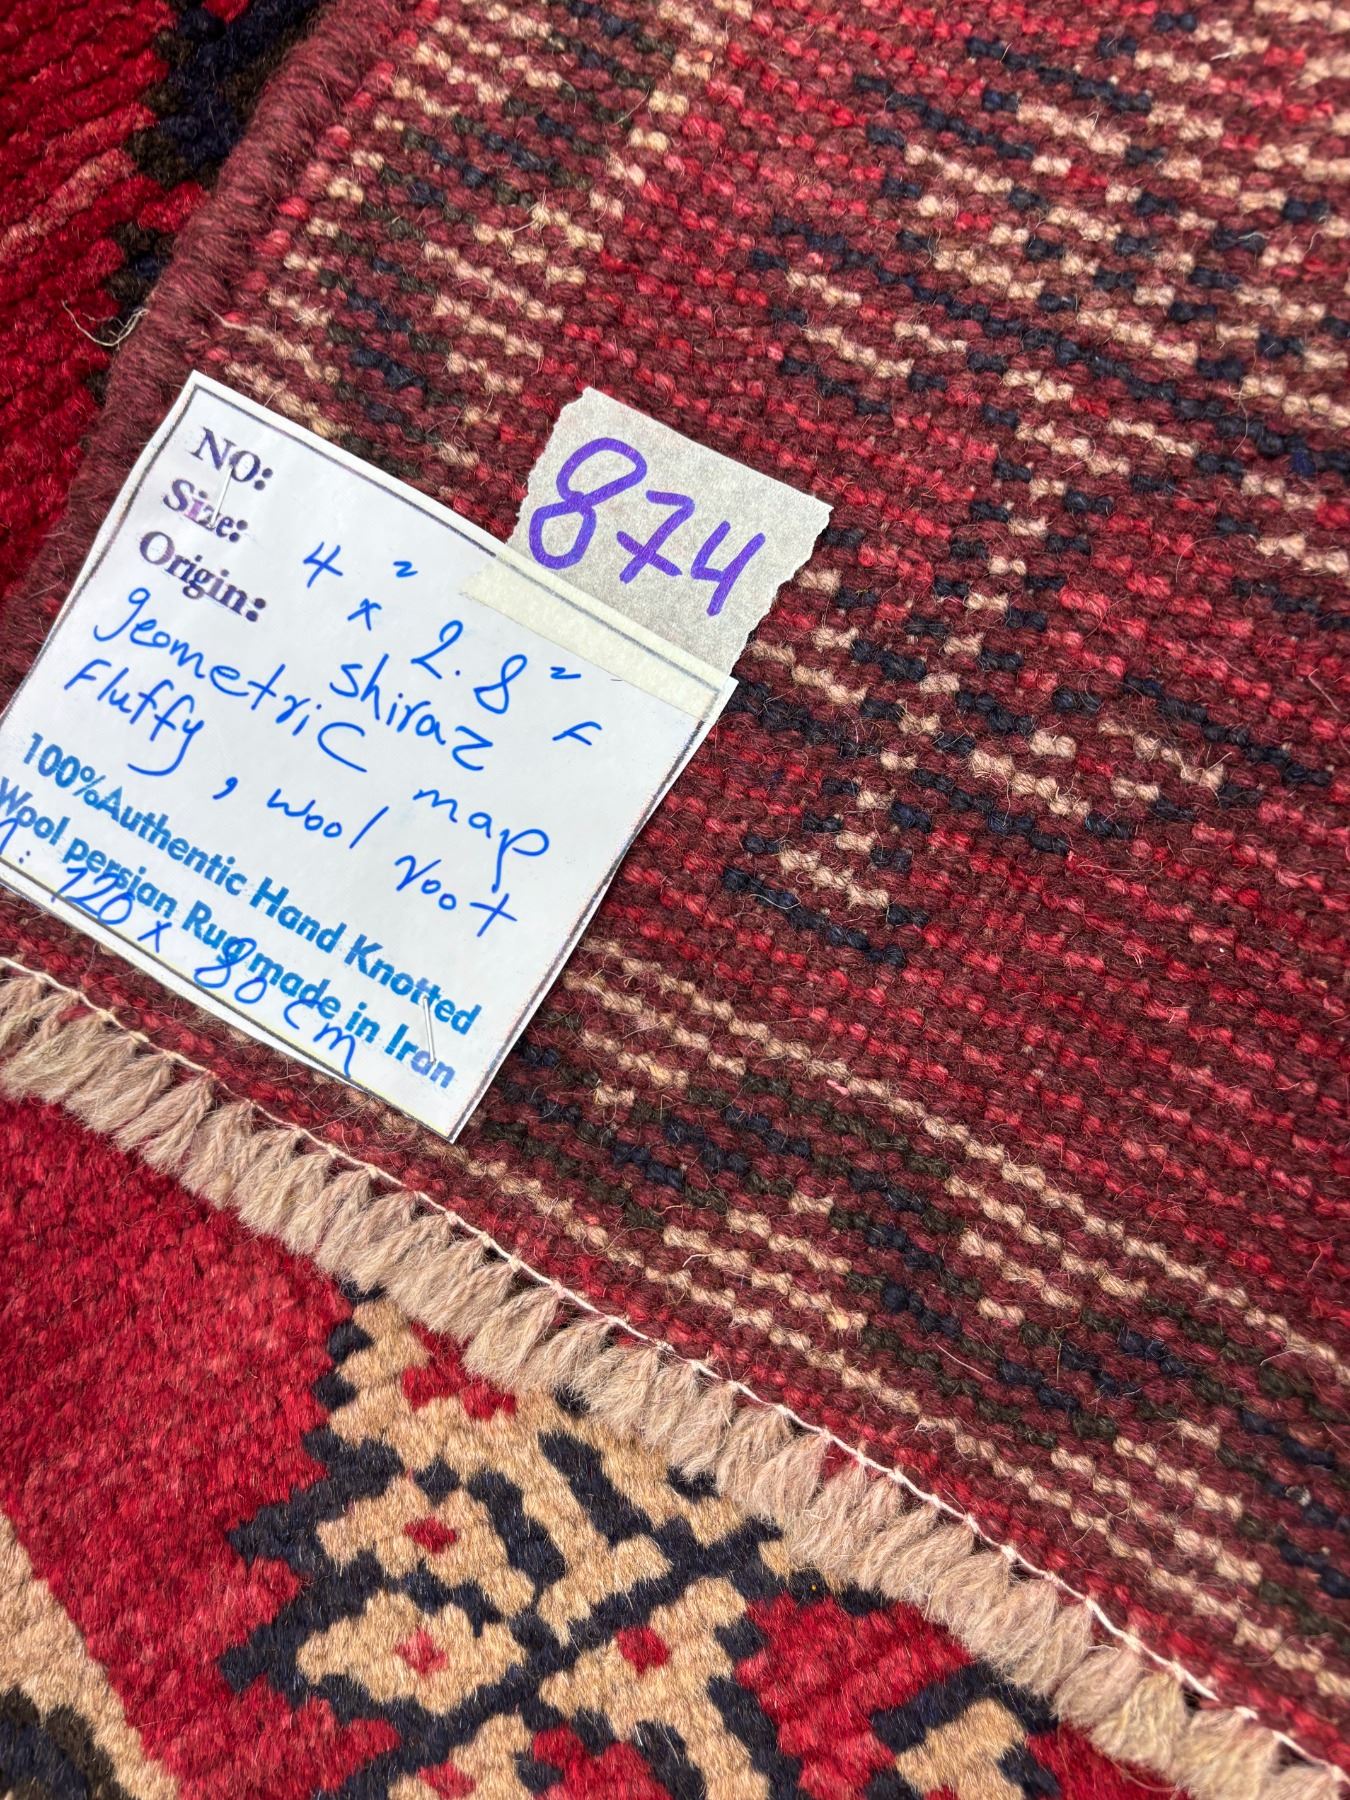 874
NO:
Size: 4" x 2.8" F
Origin: shiraz
geometric map
Fluffy, wool root
100%Authentic Hand Knotted
Wool persian Rug made in Iran
120 x 80 cm